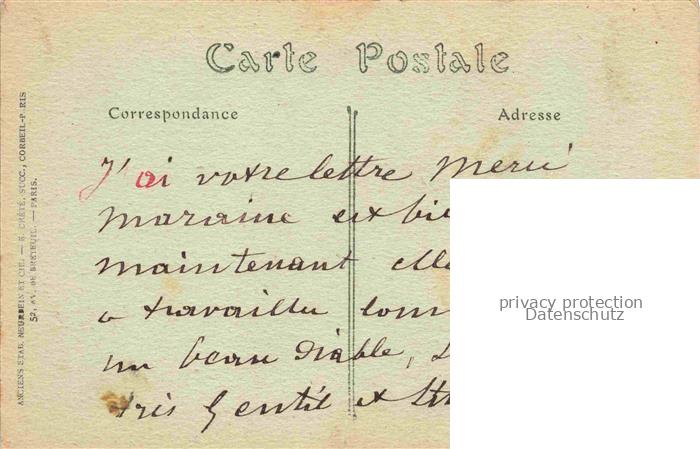 Carte Postale
Correspondance
Adresse
J'ai votre lettre Merci
Maraine est bi
maintenant elle
a travailler com
un beau Diable,
très Gentil et
ANCIENS ETAB. NEURDEIN ET CIE. — E. CRÉTÉ, SUCC., CORBEIL-PARIS
52, AV. DE BRETEUIL. — PARIS.
privacy protection
Datenschutz